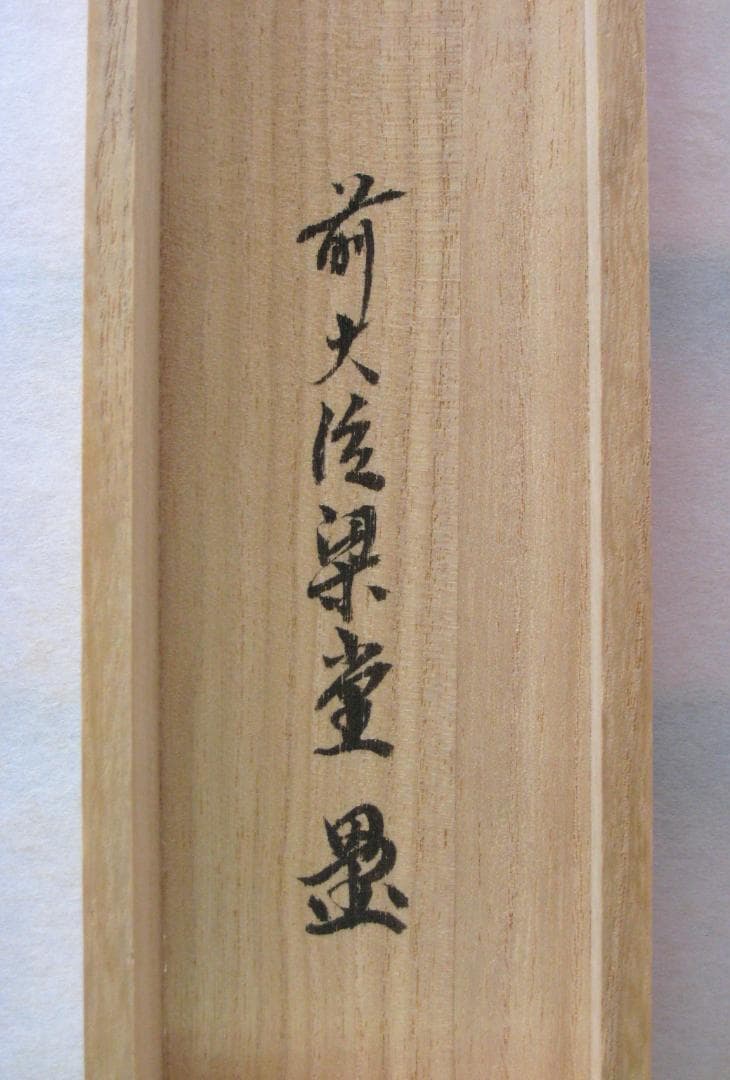 前大徳梁堂